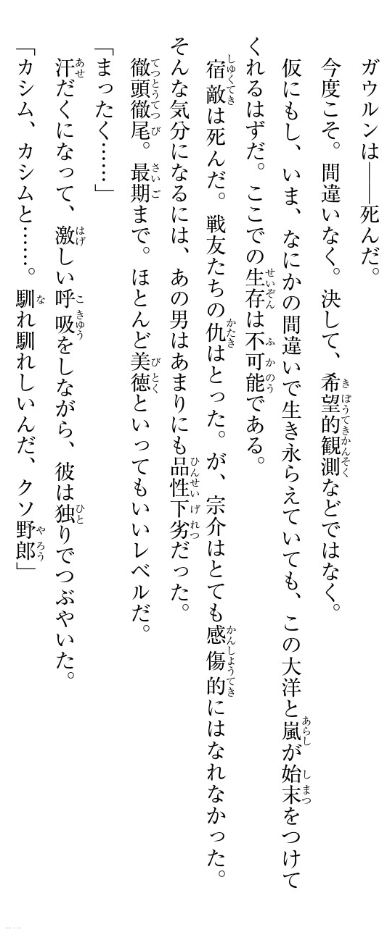 ガウルンは――死んだ。
今度こそ。間違いなく。決して、希望的観測などではなく。
仮にもし、いま、なにかの間違いで生き永らえていても、この大洋と嵐が始末をつけて
くれるはずだ。ここでの生存は不可能である。
宿敵は死んだ。戦友たちの仇はとった。が、宗介はとても感傷的にはなれなかった。
そんな気分になるには、あの男はあまりにも品性下劣だった。
徹頭徹尾。最期まで。ほとんど美徳といってもいいレベルだ。
「まったく……」
汗だくになって、激しい呼吸をしながら、彼は独りでつぶやいた。
「カシム、カシムと……。馴れ馴れしいんだ、クソ野郎」